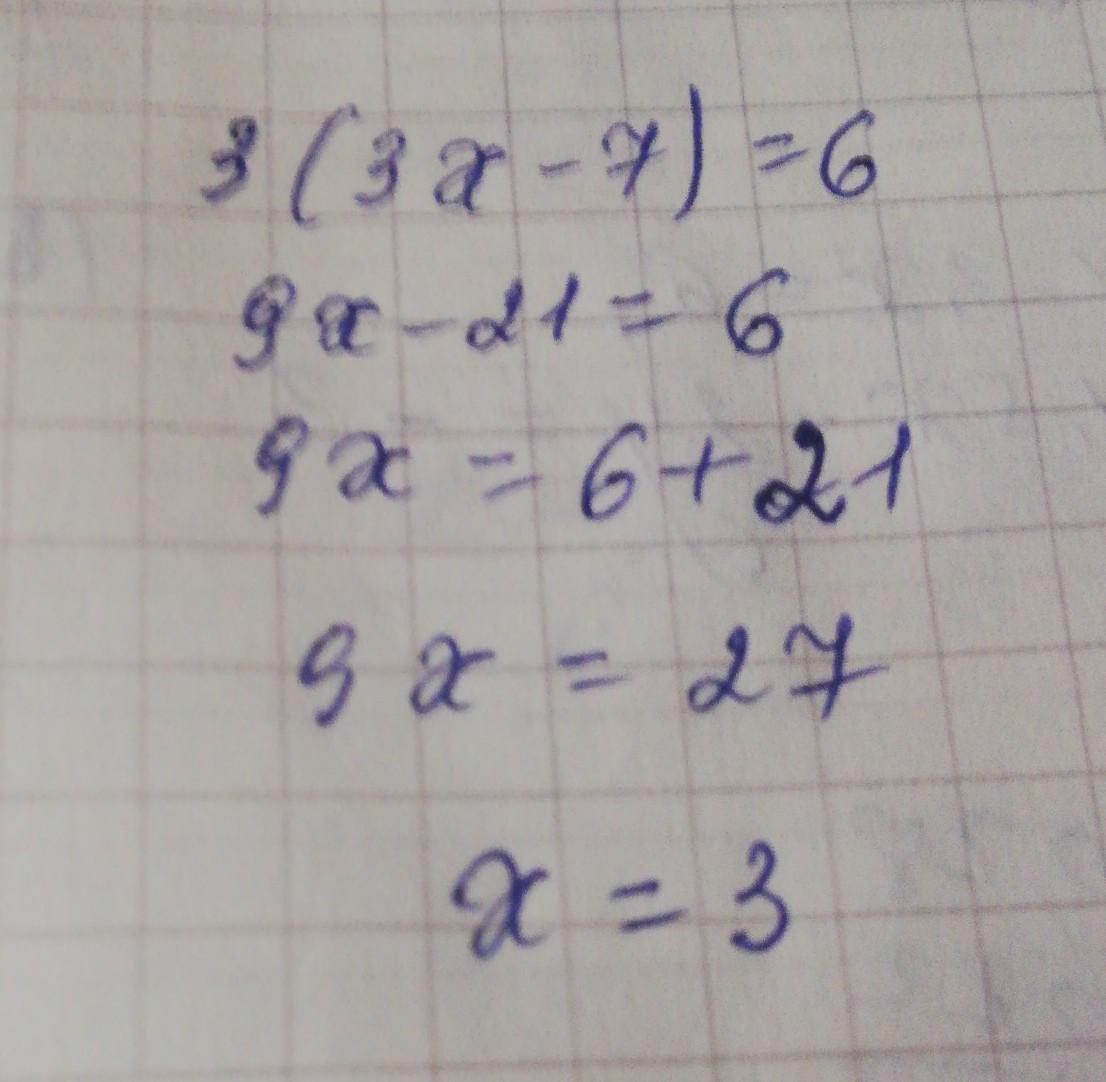 3(3x-7)=6
9x-21=6
9x=6+21
9x=27
x=3